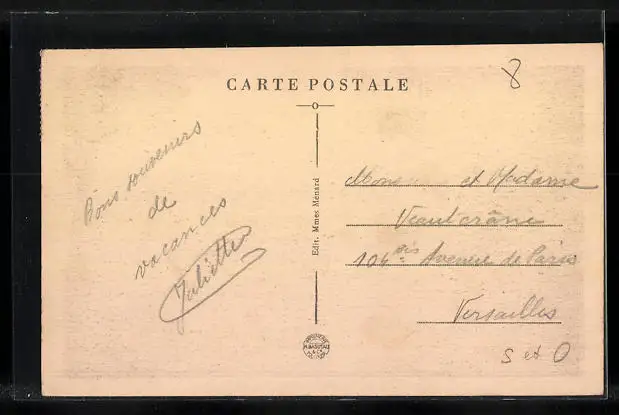 CARTE POSTALE
8
Bons souvenirs
de
vacances
Juliette
Edit. Mmes Ménard
Monsieur et Madame
104 bis Avenue de Paris
Versailles
S et O